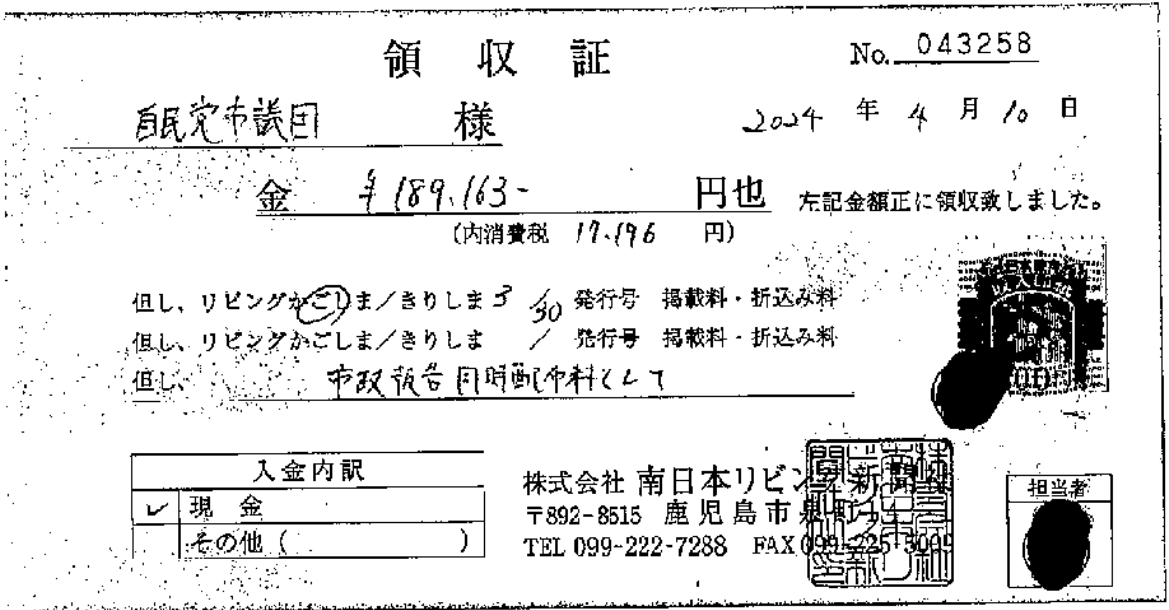 領収証
No. 043258
自民党市議団 様
2024 年 4 月 10 日
金 ¥189,163- 円也 左記金額正に領収致しました。
(内消費税 17,196 円)
但し、リビングかごしま/きりしま 3/30 発行号 掲載料・折込み料
但し、リビングかごしま/きりしま / 発行号 掲載料・折込み料
但し、 市政報告同時配布料として
入金内訳
✓ 現金
その他 ( )
株式会社 南日本リビング新聞社
〒892-8515 鹿児島市泉町
TEL 099-222-7288 FAX 099-225-
担当者